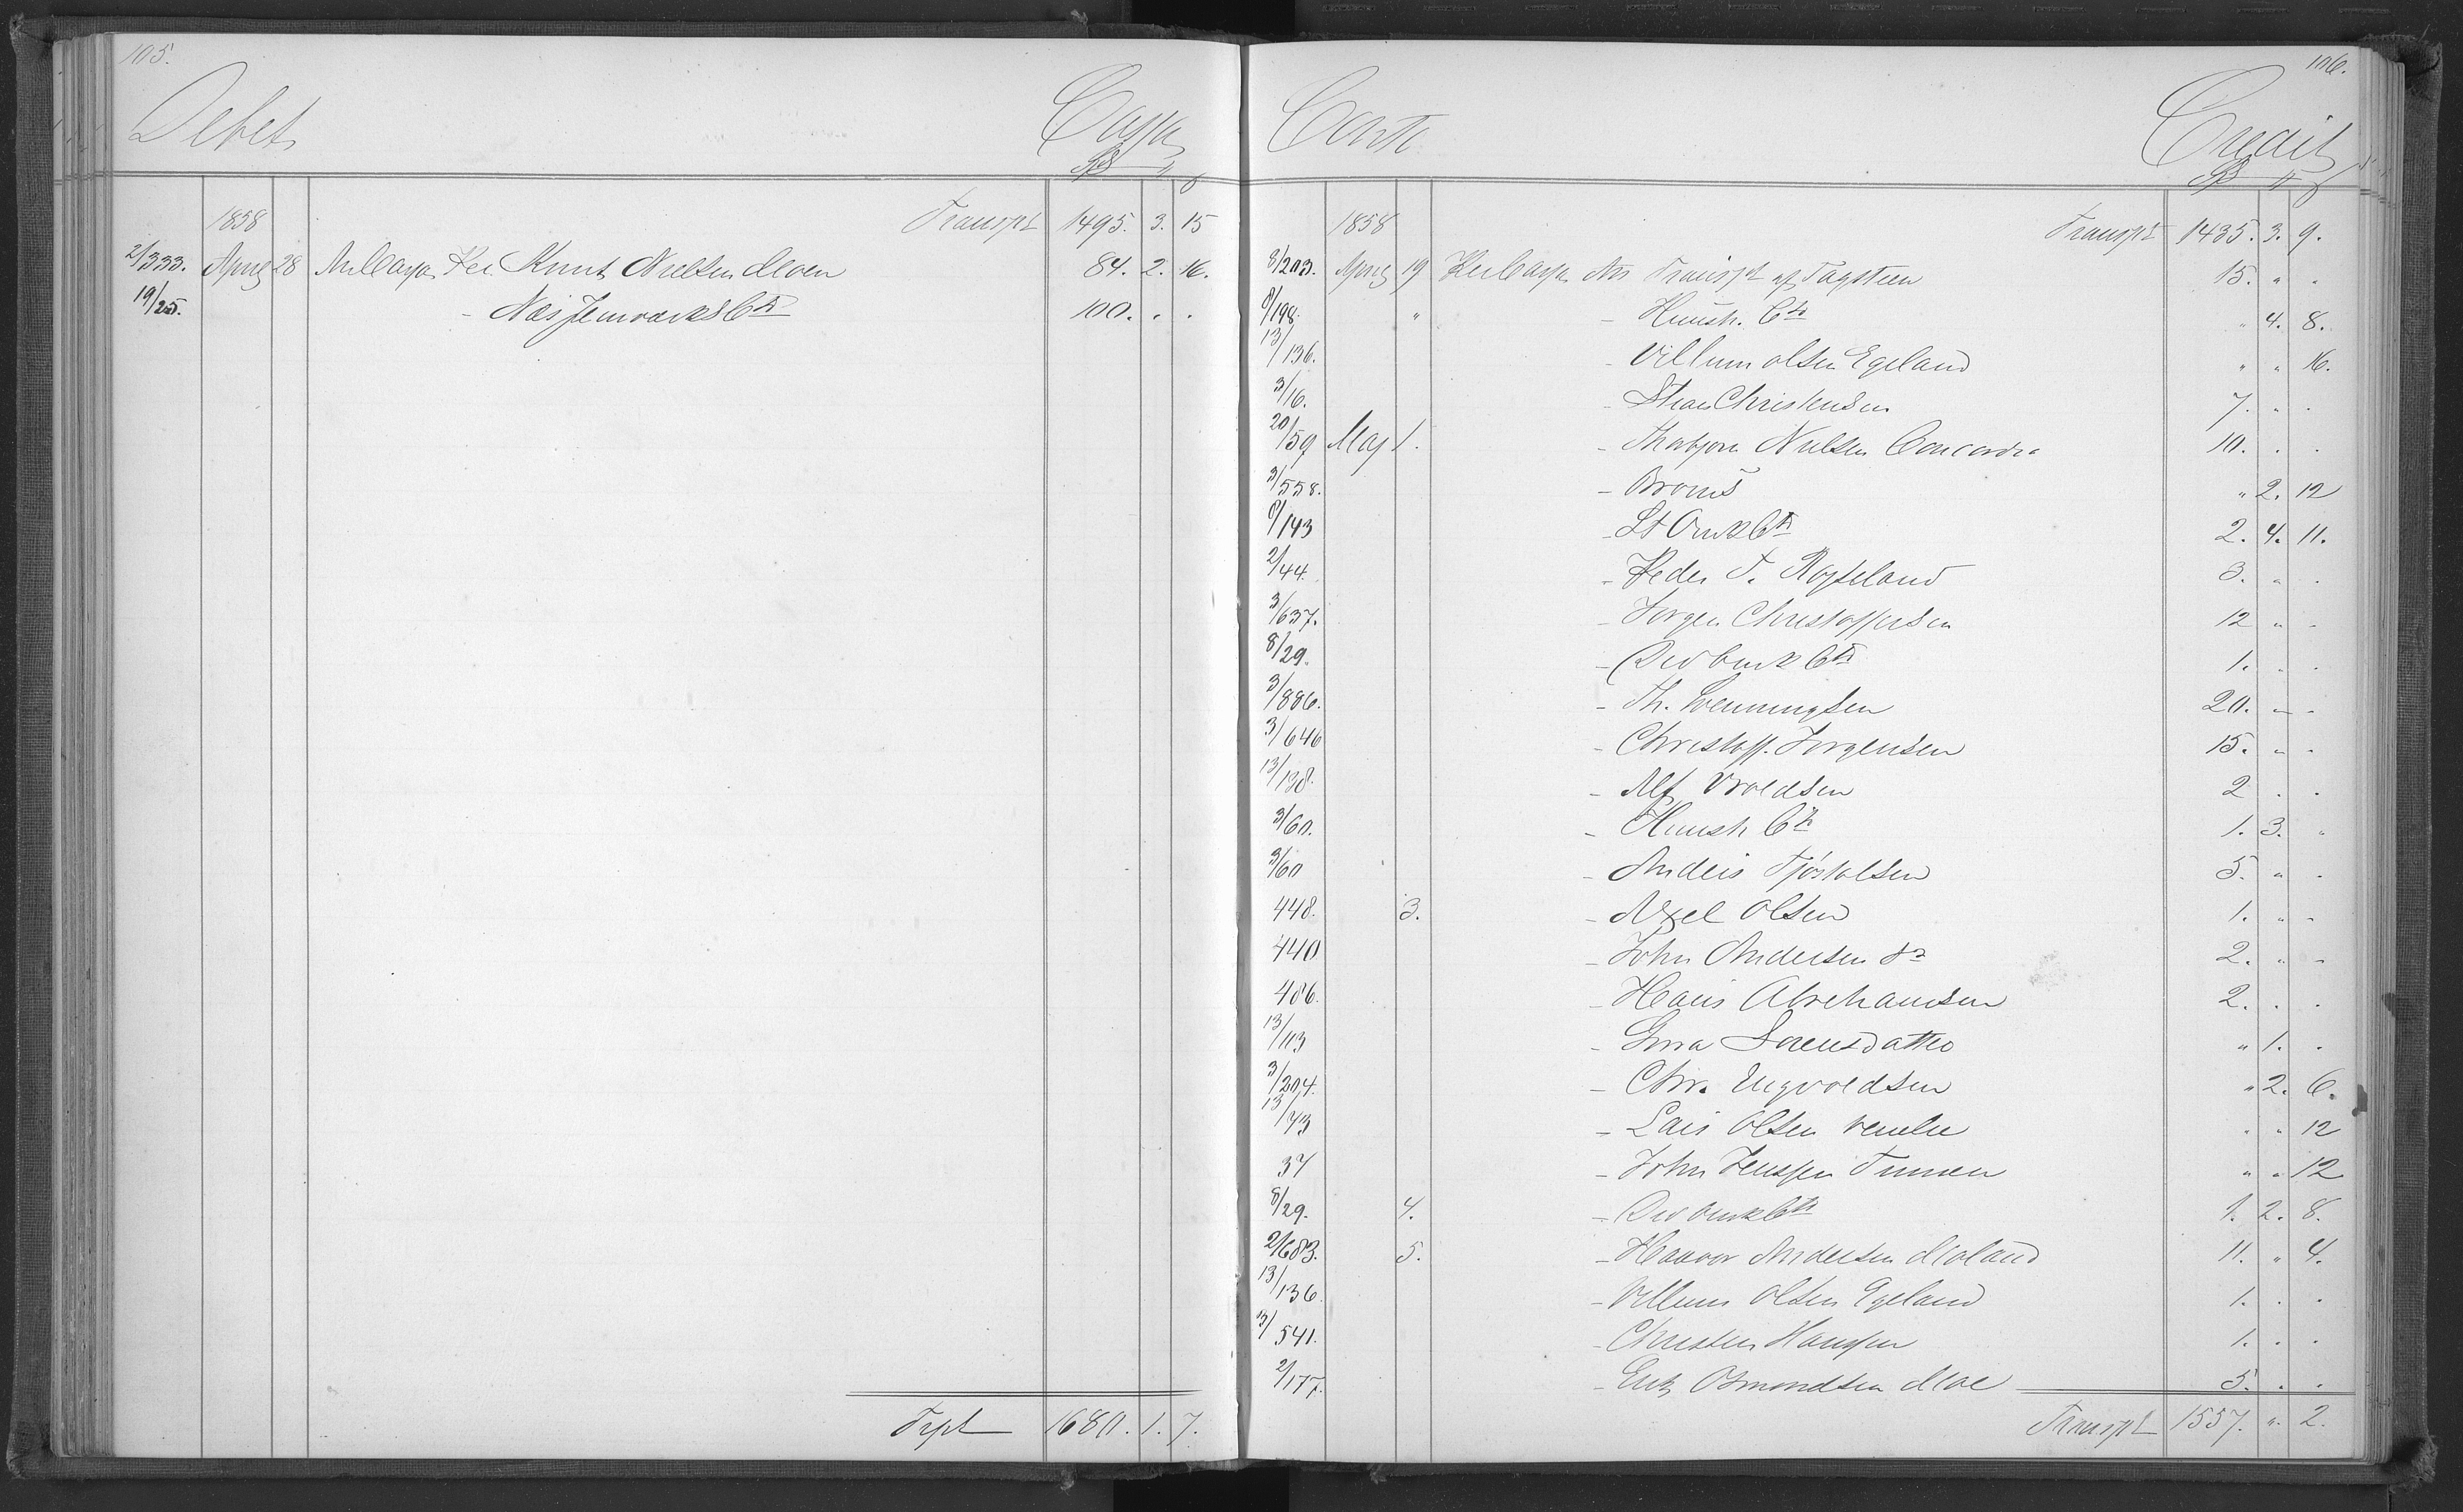 105.
Debet Cassa
Spd
1858 Transpt 1495. 3. 15
2/333. April 28 An Cassa Per Knut Nielsen Moen 84. 2. 16.
19/25. - Næs Jernværks Cto 100. . .
Trpt 1680. 1. 7.
106.
Conto Credit
Spd
1858 Transpt 1435. 3. 9.
8/203. April 19 Per Cassa An Transpt af Tagsteen 15. " .
8/198. " - Huush. Cto " 4. 8.
13/136. - Villum Olsen Egeland " " 16.
3/16. - Christensen 7. " .
20/59 Maj 1. - Thorbjørn Nielsen Concordia 10. . .
3/558. - " 2. 12
8/143 - Cto 2. 4. 11.
2/44. - Peder T. Røyseland 3. " .
3/637. - Jørgen Christoffersen 12 " -
8/29. - Cto 1. . .
3/886. - Th. 20. " -
3/646 - Christoff. Jørgensen 15. " -
13/138. - Alf Vroldsen 2 . .
3/60. - Huush Cto 1. 3. "
3/60 - Anders Tjøstolsen 5. " .
448. 3. - Axel Olsen 1. " -
440 - John Andersen 2. " -
486. - Hans Abrahamsen 2. . .
13/113 - Sørensdatter " 1. .
3/204. - Chr. Ingvoldsen " 2. 6.
13/73 - Lars Olsen " " 12
37 - John Jenssen " " 12
8/29. 4. - Cto 1. 2. 8.
2/683. 5. - Haavor Andersen Moland 11. " 4.
13/136. - Villum Olsen Egeland 1. . .
3/541. - Christen Hanssen 1. . .
2/177. - Erik Osmondsen Moe 5. . .
Transpt 1557. ". 2.